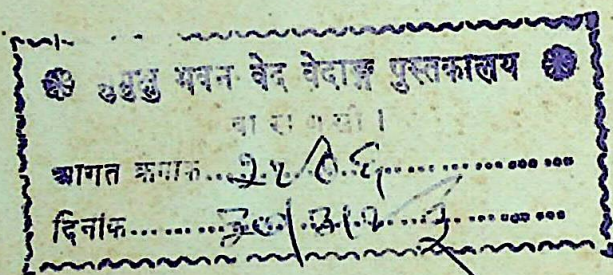 मुमुक्षु भवन वेद वेदाङ्ग पुस्तकालय
वा रा ण सी ।
आगत क्रमाक
दिनांक